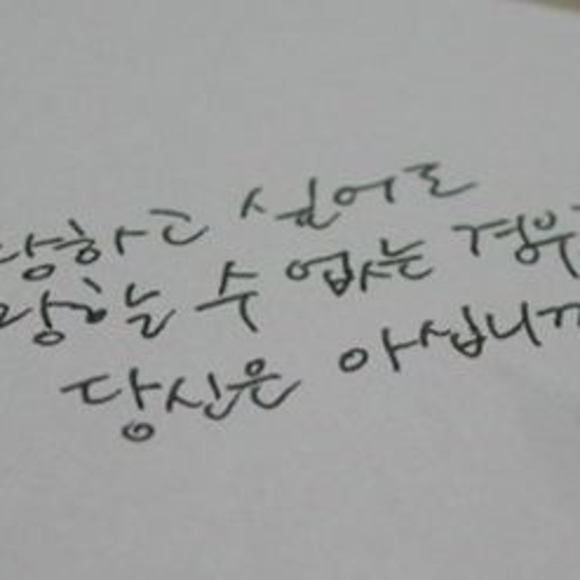 랑하고 싶어도
랑할 수 없는 경우
당신은 아십니까